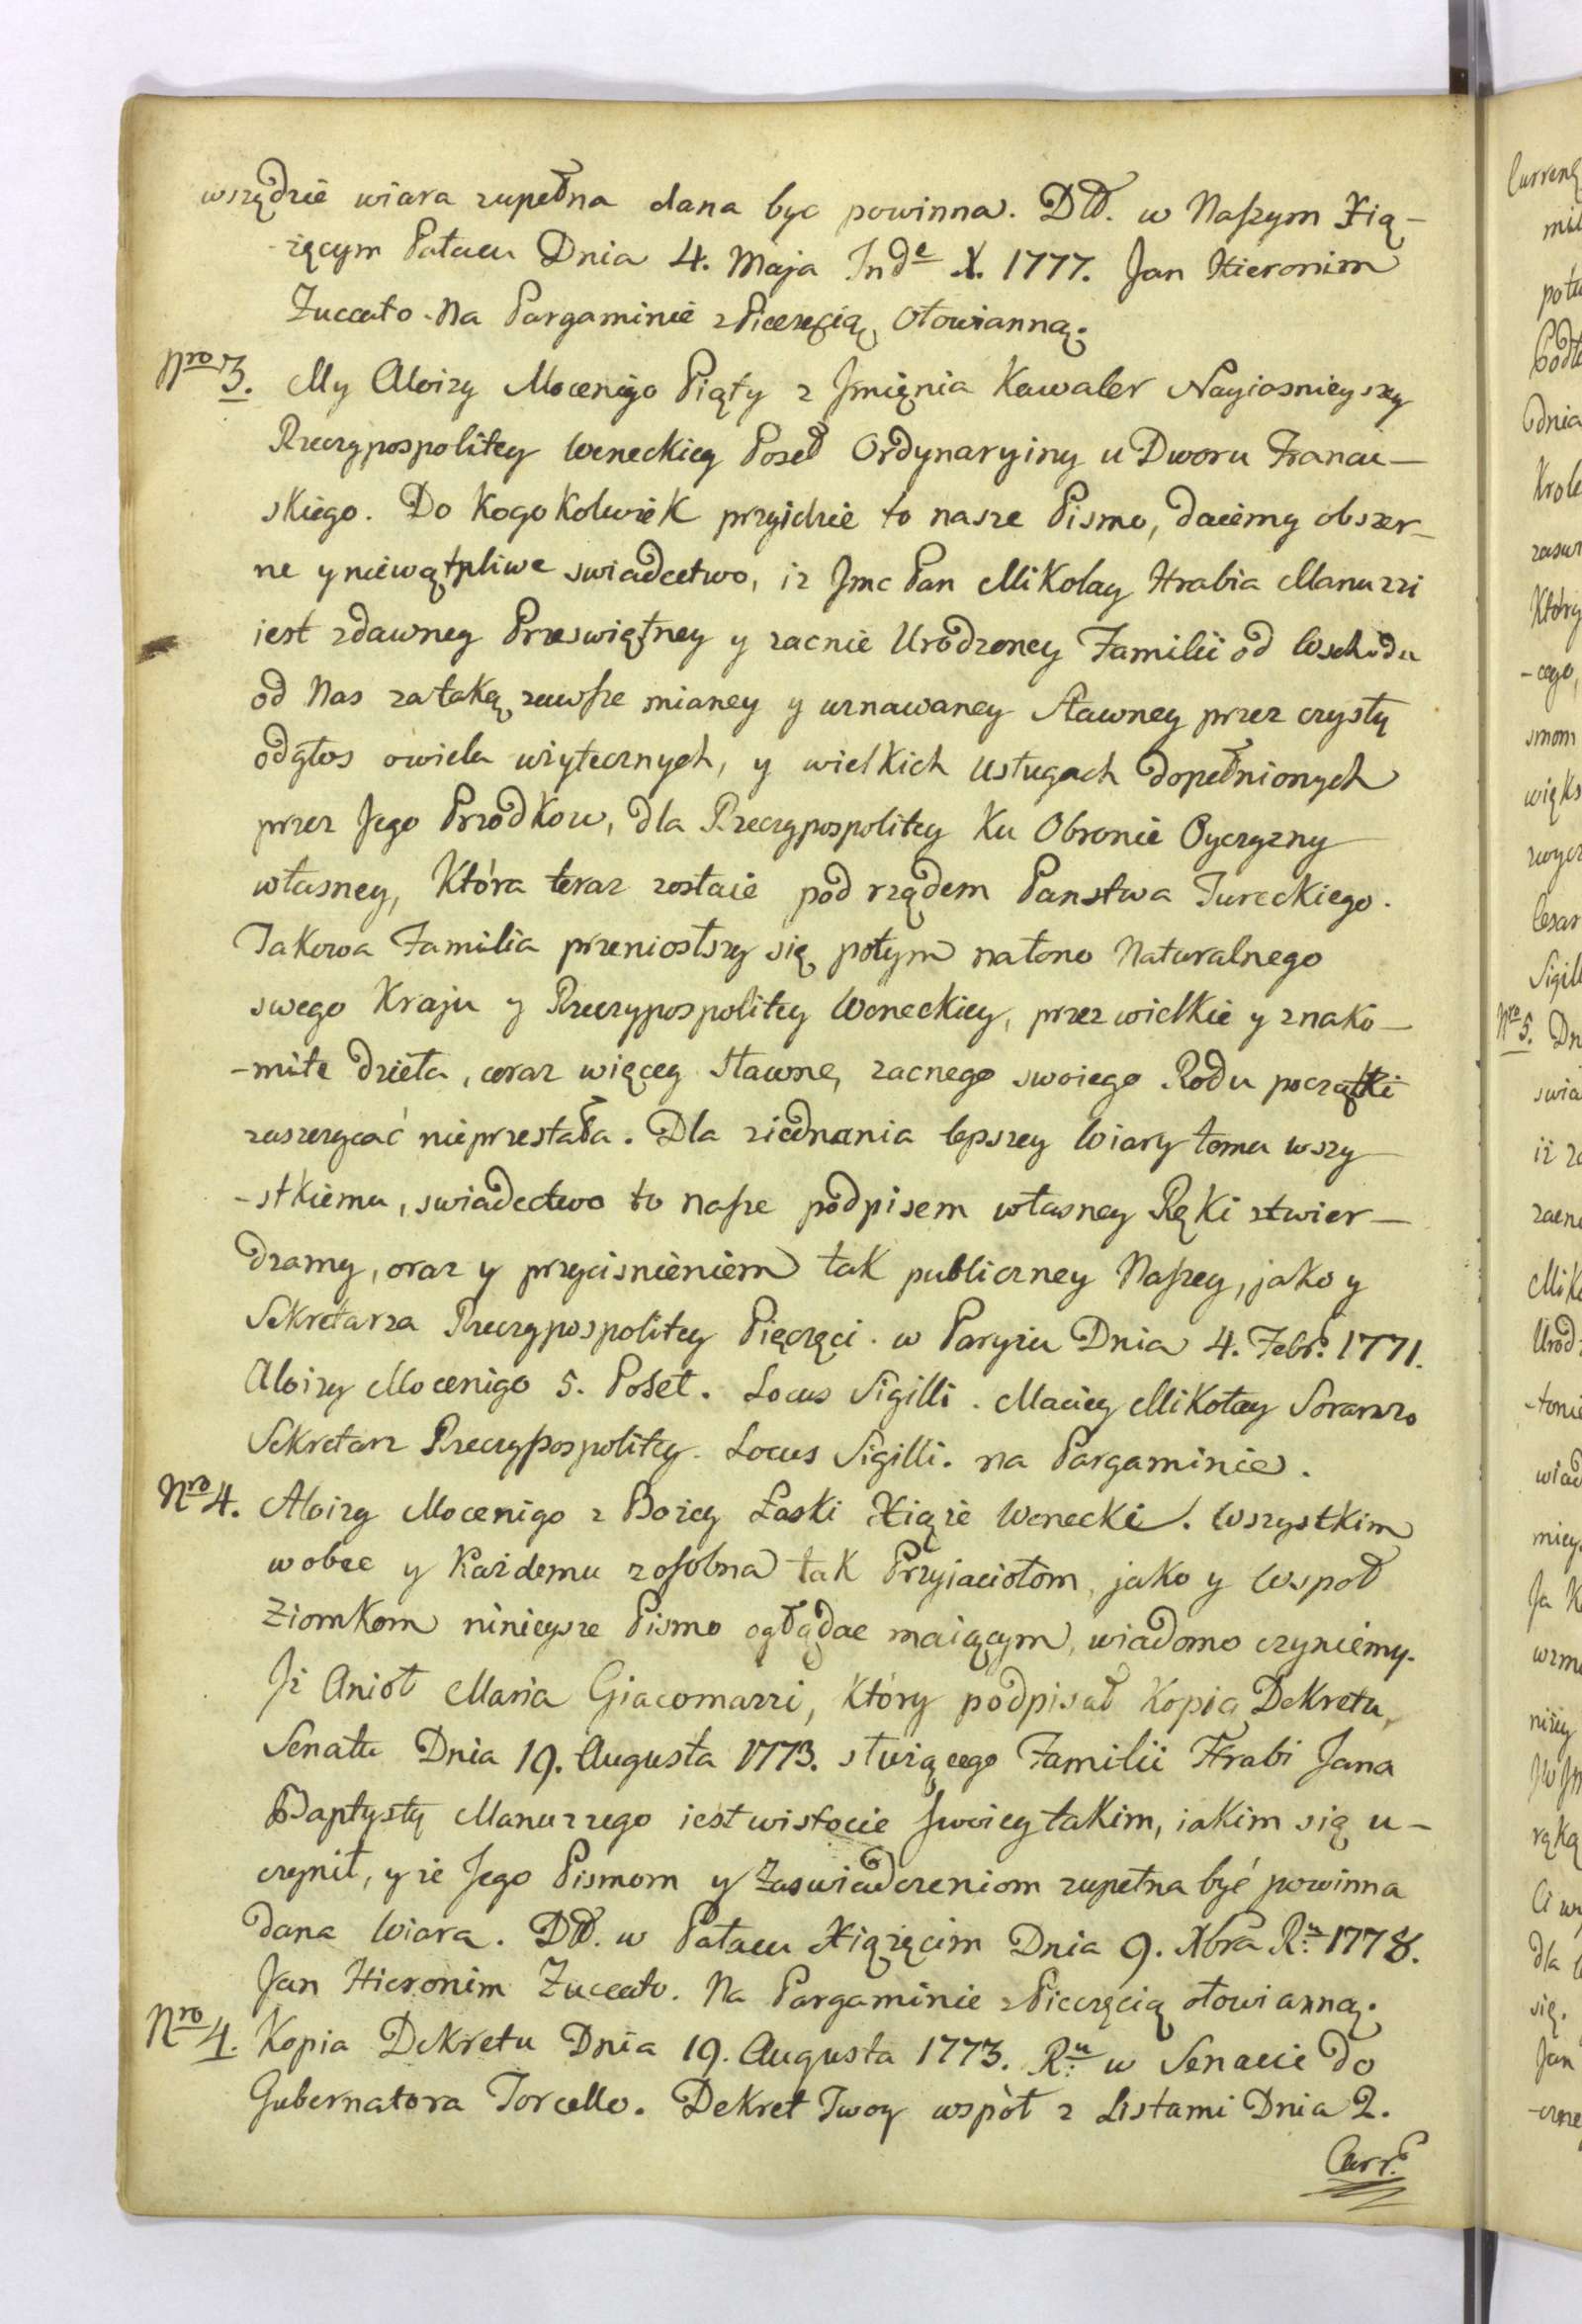 wszędzie wiara zupełna dana byc powinna. Dtt. w Naszym Xią-
-żęcym Pałacu Dnia 4. Maja Inde X. 1777. Jan Hieronim
Zuccato. Na Pargaminie z Pieczęcią Ołowianną.
Nro 3. My Aloizy Mocenigo Piąty z Jmięnia Kawaler Nayiasnieyszey
Rzeczypospolitey Weneckiey Poseł Ordynaryiny u Dworu Francu-
skiego. Do Kogokolwiek przyidzie to nasze Pismo, daiemy obszer-
ne y niewątpliwe swiadectwo, iz Jmc Pan Mikolay Hrabia Manuzzi
iest zdawney Przeswiętney y zacnie Urodzoney Familii od Wschodu
od Nas zataką zawsze mianey y uznawaney sławney przez czysty
odgłos owiela użytecznych, y wielkich usługach dopełnionych
przez Jego Przodkow, dla Rzeczypospolitey Ku Obronie Oyczyzny
własney, Która teraz zostaie pod rządem Panstwa Tureckiego.
Takowa Familia przeniosłszy się potym nałono Naturalnego
swego Kraju y Rzeczypospolitey Weneckiey, przez wielkie y znako-
-mite dzieła, coraz więcey sławne, zacnego swoiego Rodu początki
zaszczycać nieprzestała. Dla ziednania lepszey Wiary temu wszy-
-stkiemu, swiadectwo to nasze podpisem własney Ręki ztwier-
dzamy, oraz y przycisnieniem tak publiczney Naszey, jako y
Sekretarza Rzeczypospolitey Pięczęci. w Paryżu Dnia 4. Febr. 1771.
Aloizy Mocenigo 5. Poseł. Locus Sigilli. Maciey Mikołay Soranzo
Sekretarz Rzeczypospolitey. Locus Sigilli. na Pargaminie.
Nro 4. Aloizy Mocenigo z Bożey Łaski Xiąże Wenecki. Wszystkim
wobec y Każdemu zosobna tak Przyiaciołom, jako y Wspoł
Ziomkom ninieysze Pismo oglądac maiącym, wiadomo czyniemy.
Iż Anioł Maria Giacomazzi, Który podpisał Kopią Dekretu,
Senatu Dnia 19. Augusta 1773. służącego Familii Hrabi Jana
Baptysty Manuzzego iest wistocie swoiey takim, iakim się u-
czynił, y że Jego Pismom y Zaswiadczeniom zupełna być powinna
dana Wiara. Dtt. w Pałacu Xiążęcim Dnia 9. Xbra Ru 1778.
Jan Hieronim Zuccato. Na Pargaminie z Pieczęcią ołowianną.
Nro 4. Kopia Dekretu Dnia 19. Augusta 1773. Ru w Senacie do
Gubernatora Torcello. Dekret Twoy wspòł z Listami Dnia 2.
Curr.